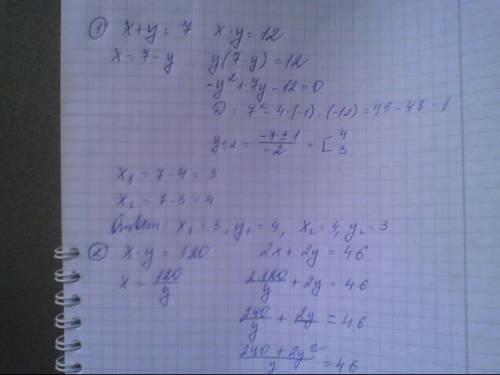 ① x+y = 7   x·y = 12
x = 7-y   y(7-y) = 12
-y²+7y-12=0
D = 7²-4·(-1)·(-12)=49-48=1
y₁,₂ = (-7±1)/(-2) = [4 3
x₁ = 7-4 = 3
x₂ = 7-3 = 4
Ответ: x₁ = 3, y₁ = 4, x₂ = 4, y₂ = 3
② x·y = 120   2x+2y = 46
x = 120/y   2·120/y + 2y = 46
240/y + 2y = 46
(240+2y²)/y = 46